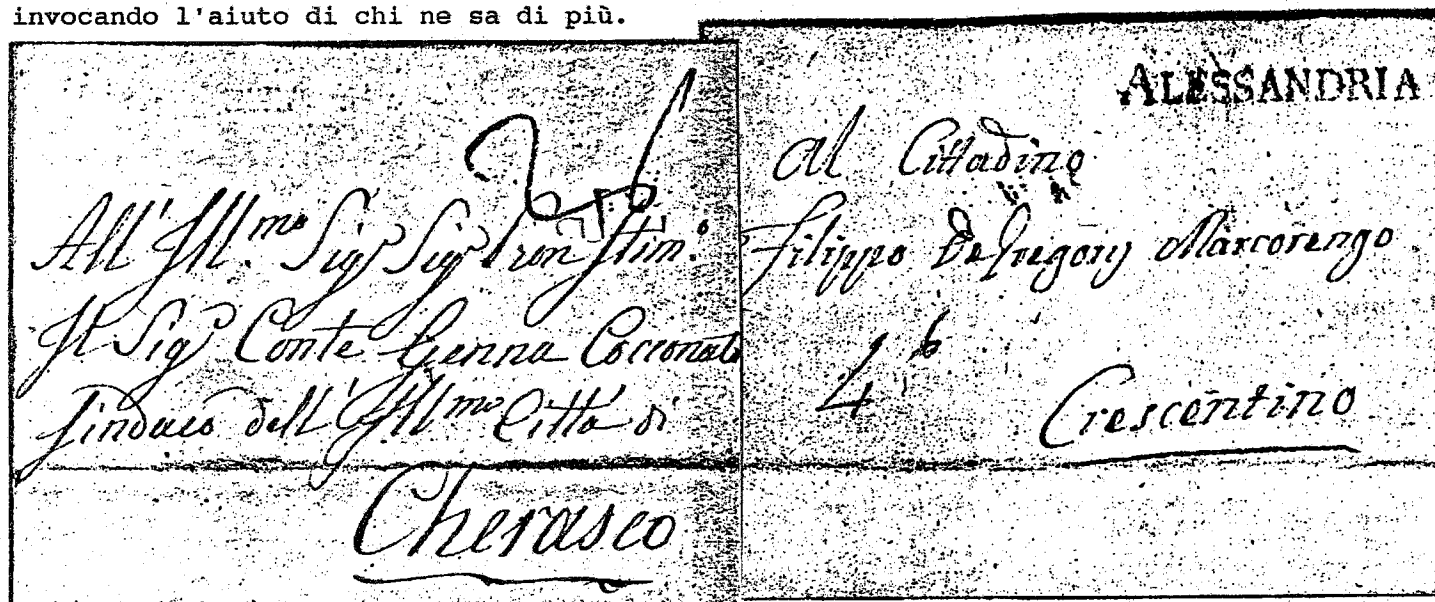 invocando l'aiuto di chi ne sa di più.
All' Ill.mo Sig Sig Pron Stim.o
Il Sig Conte Genna Cocconato
Sindaco dell' Ill mo Città di
Cherasco
ALESSANDRIA
Al Cittadino
Filippo DeGregorj Marcorengo
4
Crescentino